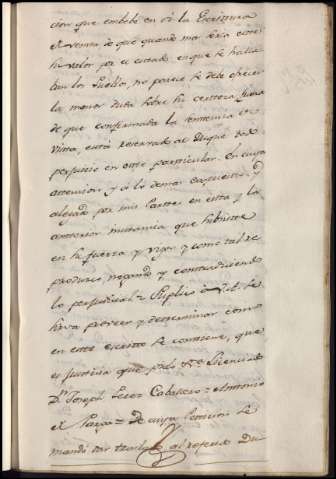 cion que embebe en si la Escriptura
de venta de que quando mas seria este
su valor por el estado en que se halla
ban los suelos, no parece se debe ofrecer
la menor duda sobre la certeza
de que confirmada la sentencia de
vista, está reservado al Duque dho
perjuicio en este particular. En cuya
attencion, y á lo demas expuesto, y
alegado por mis Partes en esta, y la
anterior instancia que subsiste
en su fuerza y vigor, y como tal re
produzco, negando y contradiciendo
lo perjudicial = Suplico á V.A. se
sirva proveer y determinar como
en este escrito se contiene, que
es justicia que pido &c. Licenciado
Dn. Joseph Perez Caballero = Antonio
de = De cuya Peticion se
mandó dar traslado al referido Du